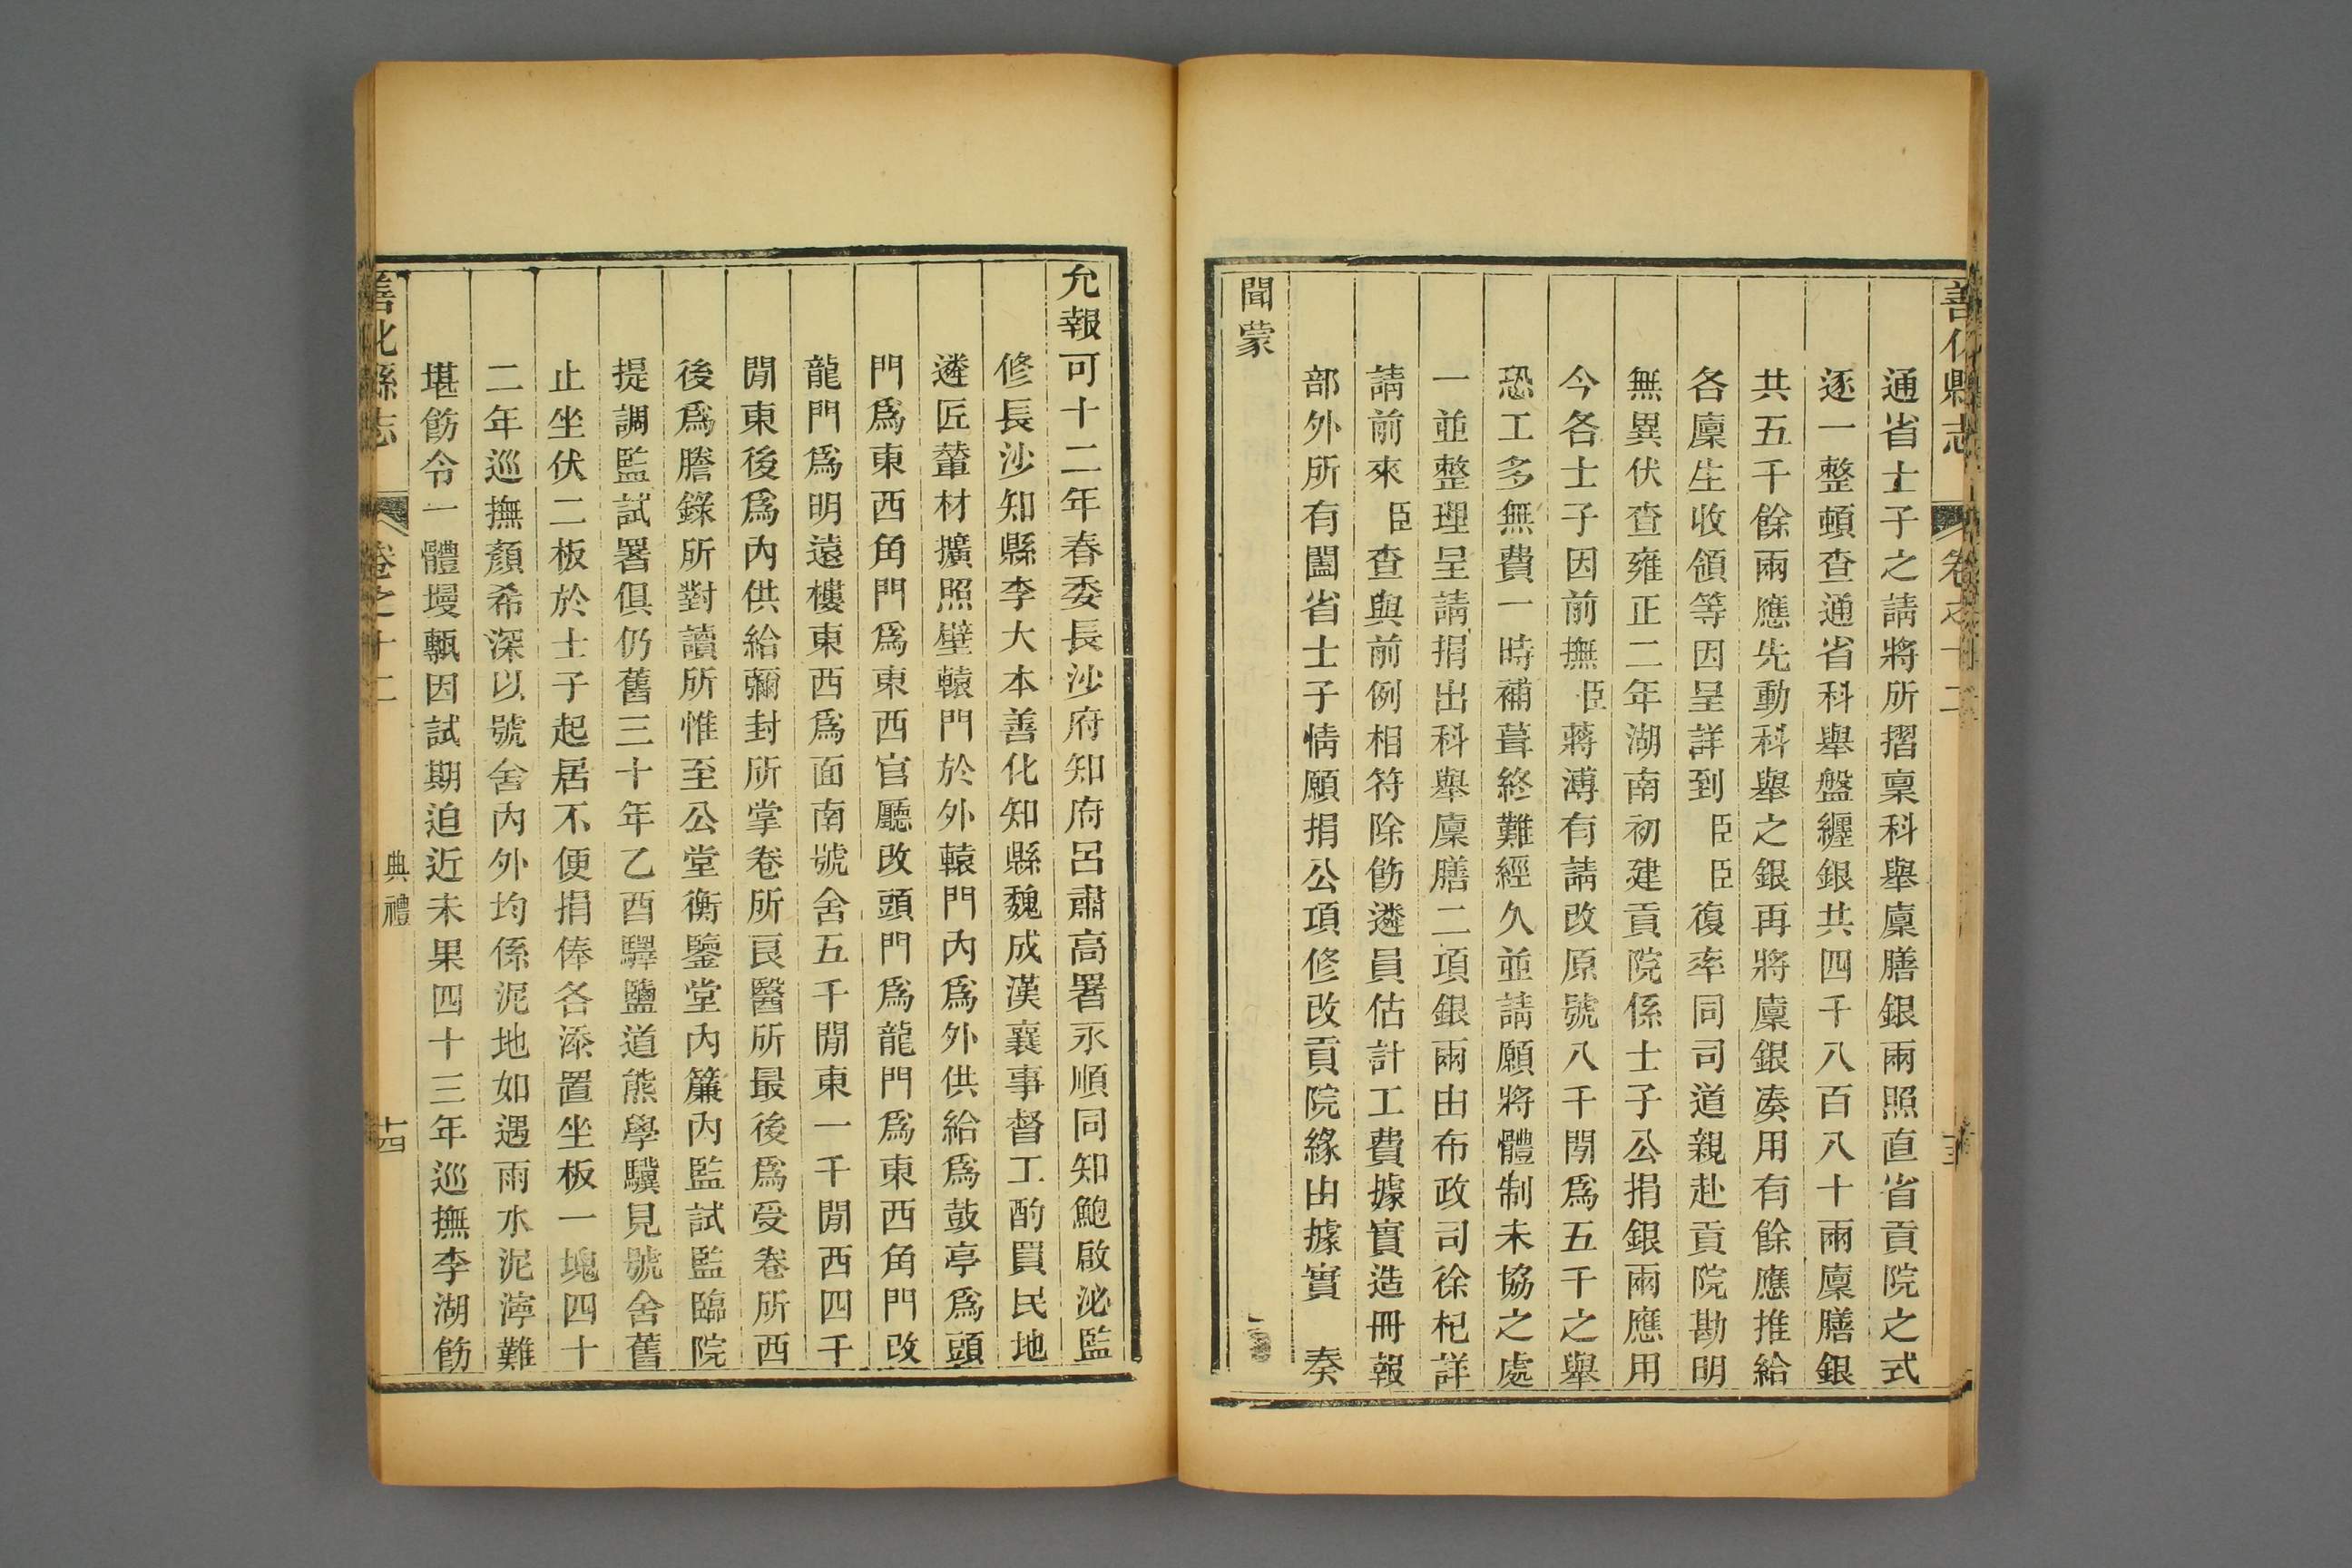 善化縣志 卷之十二
通省士子之請將所摺稟科舉廩膳銀兩照直省貢院之式
逐一整頓查通省科舉盤纒銀共四千八百八十兩廩膳銀
共五千餘兩應先動科舉之銀再將廩銀凑用有餘應推給
各廩生收領等因呈詳到臣臣復率同司道親赴貢院勘明
無異伏查雍正二年湖南初建貢院係士子公捐銀兩應用
今各士子因前撫臣蔣溥有請改原號八千閒爲五千之舉
恐工多無費一時補葺終難經久並請願將體制未協之處
一並整理呈請捐出科舉廩膳二項銀兩由布政司徐杞詳
請前來臣查與前例相符除飭遴員估計工費據實造冊報
部外所有闔省士子情願捐公項修改貢院緣由據實 奏
聞蒙
允報可十二年春委長沙府知府呂肅高署永順同知鮑啟泌監
修長沙知縣李大本善化知縣魏成漢襄事督工酌買民地
遴匠輂材擴照壁轅門於外轅門內爲外供給爲鼓亭爲頭
門爲東西角門爲東西官廳改頭門爲龍門爲東西角門改
龍門爲明遠樓東西爲面南號舍五千閒東一千閒西四千
閒東後爲內供給彌封所掌卷所良醫所最後爲受卷所西
後爲謄錄所對讀所惟至公堂衡鑒堂內簾內監試監臨院
提調監試署俱仍舊三十年乙酉驛鹽道熊學驥見號舍舊
止坐伏二板於士子起居不便捐俸各添置坐板一塊四十
二年巡撫顏希深以號舍內外均係泥地如遇雨水泥濘難
堪飭令一體墁甎因試期迫近未果四十三年巡撫李湖飭
善化縣志 卷之十二 典禮 十四